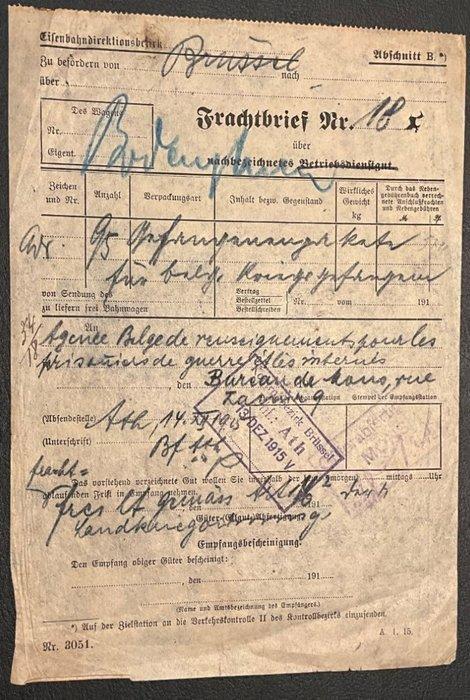 Eisenbahndirektionsbezirk Brüssel Abschnitt B.*)
Zu befördern von nach
über
Des Wagens
Frachtbrief Nr. 18
Nr.
über
Eigent.
nachbezeichnetes Betriebsdienstgut
Zeichen und Nr. Anzahl Verpackungsart Inhalt bezw. Gegenstand Wirkliches Gewicht kg Durch das Nebengebührenbuch verrechnete Anschlußfrachten und Nebengebühren
M
Adr. 95 Gefangenenpakete
für belg. Kriegsgefangene
von Sendung des
zu liefern frei Bahnwagen
Vertrag
Bestellzettel
Bestellschreiben
Nr. vom 191
An
Agence Belge de renseignements pour les
prisonniers de guerre et les internés
, den Bureau de Mons, rue
9
Stempel der Empfangsstation
(Absendestelle) Ath, 14. XII 1915
(Unterschrift) Bf Ath
Bezirk Brüssel
Ath
13 DEZ. 1915 V
fracht=
Das vorstehend verzeichnete Gut wollen Sie innerhalb der morgen mittags Uhr
ablaufenden Frist in Empfang nehmen.
frei lt.
Güter-(Eilgut-)Abfertigung
Empfangsbescheinigung.
Den Empfang obiger Güter bescheinigt:
, den 191
(Name und Amtsbezeichnung des Empfängers.)
*) Auf der Zielstation an die Verkehrskontrolle II des Kontrollbezirks einzusenden.
Nr. 3051. A. I. 15.